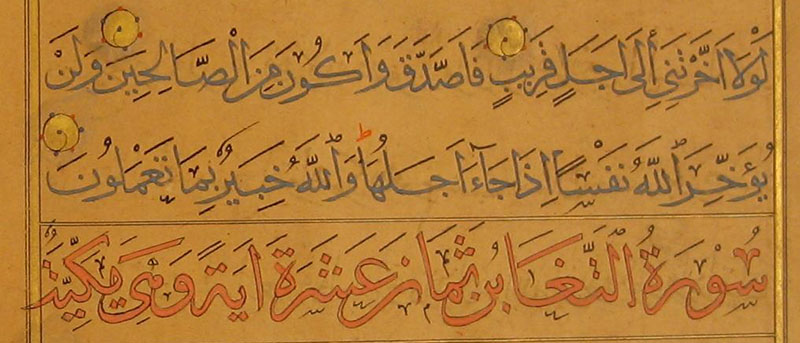 لَوْلَا اَخَّرْتَنِي أِلَى اَجَلٍ قَرِيبٍ فَاَصَّدَّقَ وَاَكُونَ مِنَ الْصَّالِحِينَ وَلَنْ
يُؤَخِّرَ اللّٰهُ نَفْسًا اِذَا جَآءَ اَجَلُهَا ط وَاللّٰهُ خَبِيرٌ بِمَا تَعْمَلُونَ
سُوْرَةُ الْتَّغَابُنِ ثَمَانِ عَشْرَةَ اٰيَةً وَهِيَ مَكِّيَّةٌ